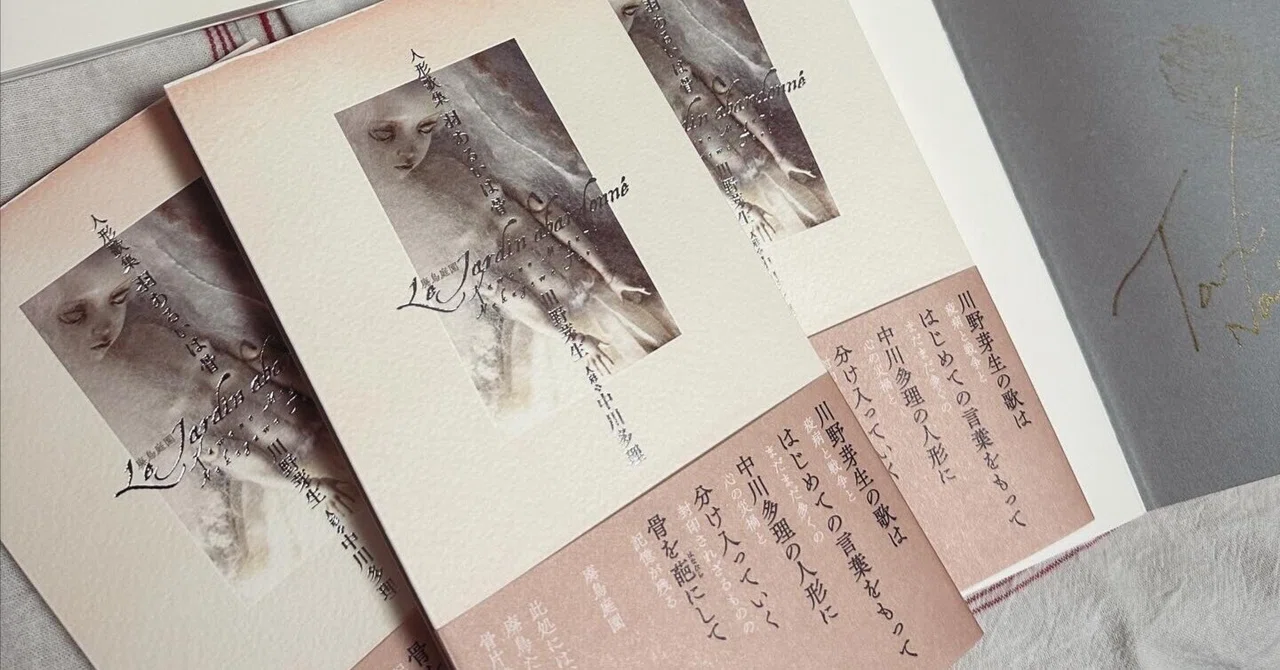 人形歌集 羽あるいは骨
Le Jardin abandonné
廃鳥庭園
川野芽生
人形・中川多理
川野芽生の歌は
疫病と戦争と
はじめての言葉をもって
まだまだ多くの
中川多理の人形に
心の災禍と
分け入っていく
封印されざるものの
骨を葩にして
はなびら
記憶が残る
廃鳥庭園
此処には
廃鳥た
骨片
人形歌集 羽あるいは骨
Le Jardin aba
廃鳥庭園
川野芽生
人形・中川多理
骨
din abandonné
川野芽生
川野芽生の歌は
疫病と戦争と
はじめての言葉をもって
まだまだ多くの
中川多理の人形に
心の災禍と
分け入っていく